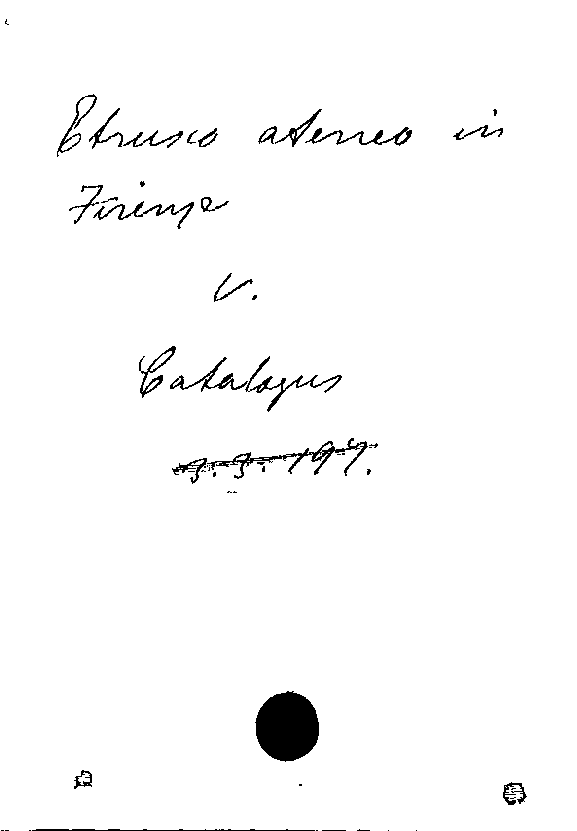 Etrusco ateneo in
Firenze
V.
Catalogus
3. 3. 197.